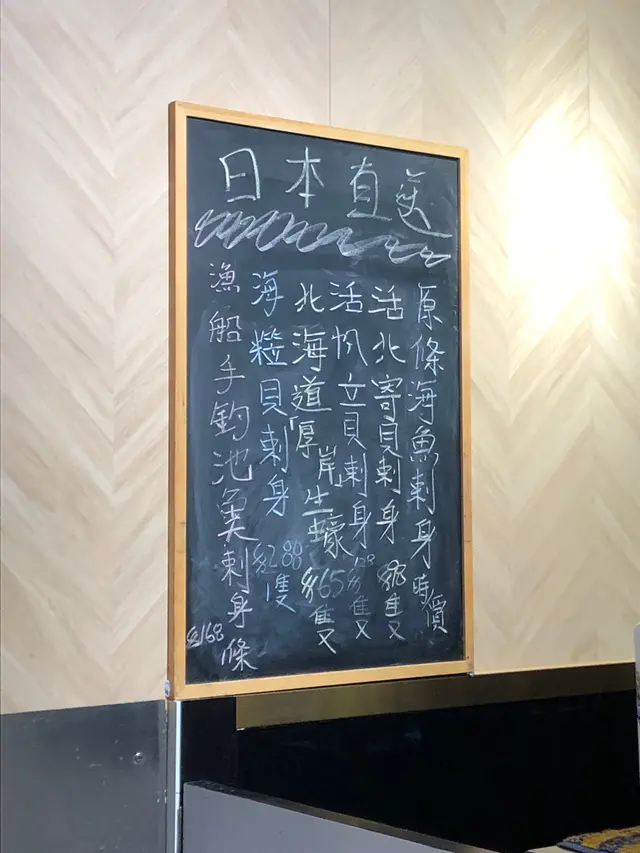 日本直送
原條海魚刺身 時價
活北寄貝刺身 隻
活帆立貝刺身 隻
北海道厚岸生蠔 $65隻
海粒貝刺身 $288隻
漁船手釣池魚刺身 $168條